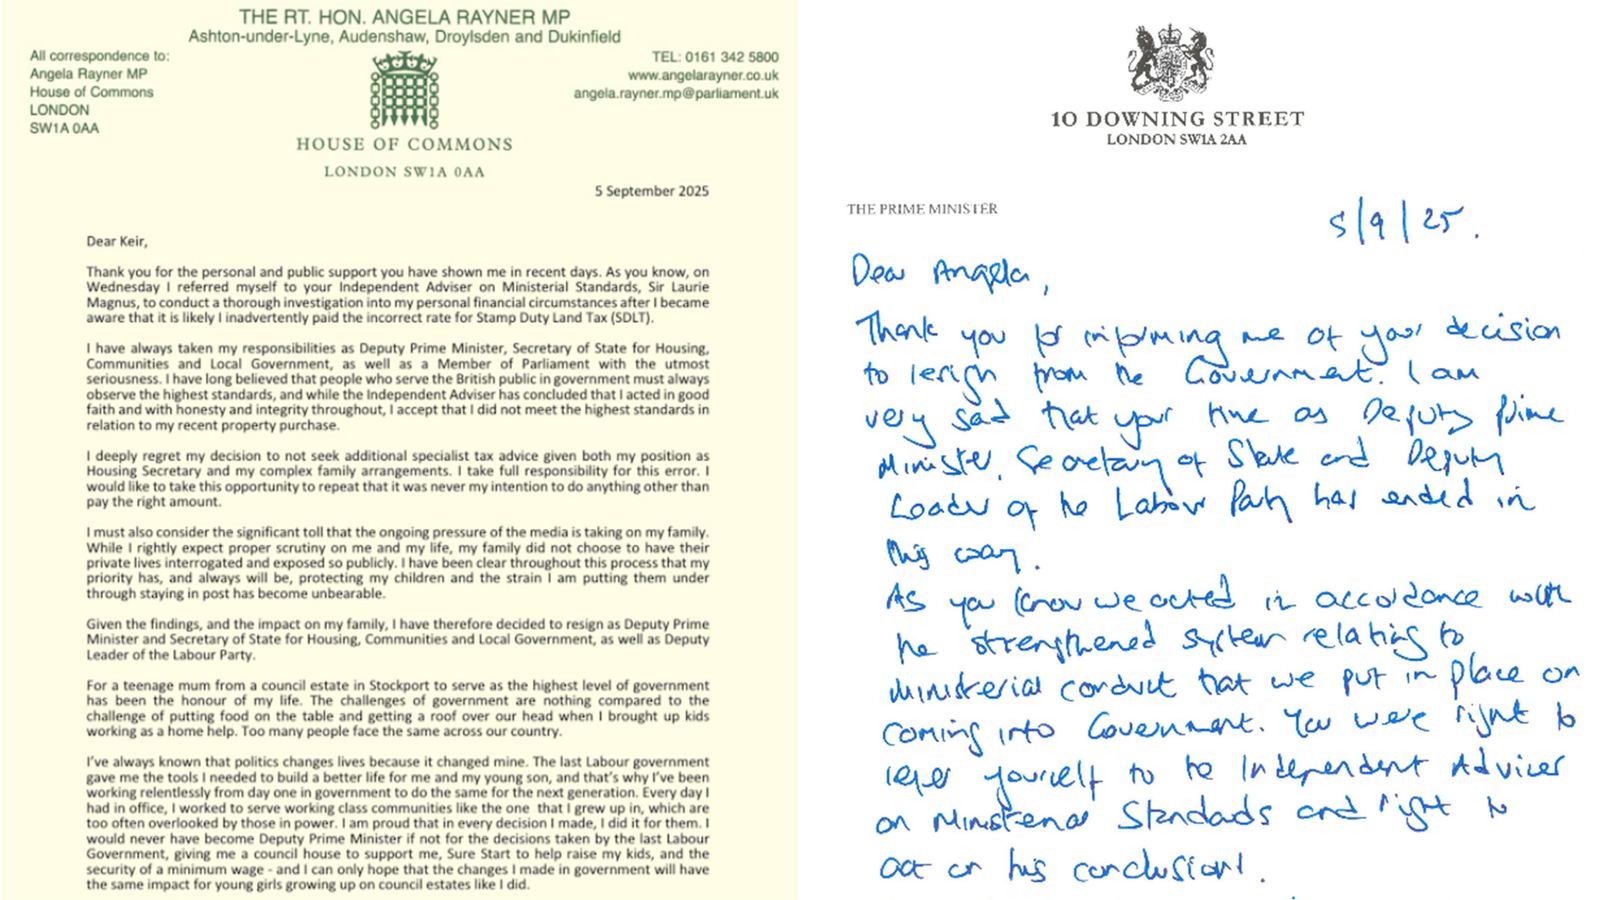 THE RT. HON. ANGELA RAYNER MP
Ashton-under-Lyne, Audenshaw, Droylsden and Dukinfield
All correspondence to:
Angela Rayner MP
House of Commons
LONDON
SW1A 0AA
TEL: 0161 342 5800
www.angelarayner.co.uk
angela.rayner.mp@parliament.uk
HOUSE OF COMMONS
LONDON SW1A 0AA
5 September 2025
Dear Keir,
Thank you for the personal and public support you have shown me in recent days. As you know, on
Wednesday I referred myself to your Independent Adviser on Ministerial Standards, Sir Laurie
Magnus, to conduct a thorough investigation into my personal financial circumstances after I became
aware that it is likely I inadvertently paid the incorrect rate for Stamp Duty Land Tax (SDLT).
I have always taken my responsibilities as Deputy Prime Minister, Secretary of State for Housing,
Communities and Local Government, as well as a Member of Parliament with the utmost
seriousness. I have long believed that people who serve the British public in government must always
observe the highest standards, and while the Independent Adviser has concluded that I acted in good
faith and with honesty and integrity throughout, I accept that I did not meet the highest standards in
relation to my recent property purchase.
I deeply regret my decision to not seek additional specialist tax advice given both my position as
Housing Secretary and my complex family arrangements. I take full responsibility for this error. I
would like to take this opportunity to repeat that it was never my intention to do anything other than
pay the right amount.
I must also consider the significant toll that the ongoing pressure of the media is taking on my family.
While I rightly expect proper scrutiny on me and my life, my family did not choose to have their
private lives interrogated and exposed so publicly. I have been clear throughout this process that my
priority has, and always will be, protecting my children and the strain I am putting them under
through staying in post has become unbearable.
Given the findings, and the impact on my family, I have therefore decided to resign as Deputy Prime
Minister and Secretary of State for Housing, Communities and Local Government, as well as Deputy
Leader of the Labour Party.
For a teenage mum from a council estate in Stockport to serve as the highest level of government
has been the honour of my life. The challenges of government are nothing compared to the
challenge of putting food on the table and getting a roof over our head when I brought up kids
working as a home help. Too many people face the same across our country.
I've always known that politics changes lives because it changed mine. The last Labour government
gave me the tools I needed to build a better life for me and my young son, and that's why I've been
working relentlessly from day one in government to do the same for the next generation. Every day I
had in office, I worked to serve working class communities like the one that I grew up in, which are
too often overlooked by those in power. I am proud that in every decision I made, I did it for them. I
would never have become Deputy Prime Minister if not for the decisions taken by the last Labour
Government, giving me a council house to support me, Sure Start to help raise my kids, and the
security of a minimum wage - and I can only hope that the changes I made in government will have
the same impact for young girls growing up on council estates like I did.
10 DOWNING STREET
LONDON SW1A 2AA
THE PRIME MINISTER
5/9/25.
Dear Angela,
Thank you for informing me of your decision
to resign from the Government. I am
very sad that your time as Deputy Prime
Minister, Secretary of State and Deputy
Leader of the Labour Party has ended in
this way.
As you know we acted in accordance with
the strengthened system relating to
Ministerial conduct that we put in place on
coming into Government. You were right to
refer yourself to the Independent Adviser
on Ministerial Standards and right to
act on his conclusion.